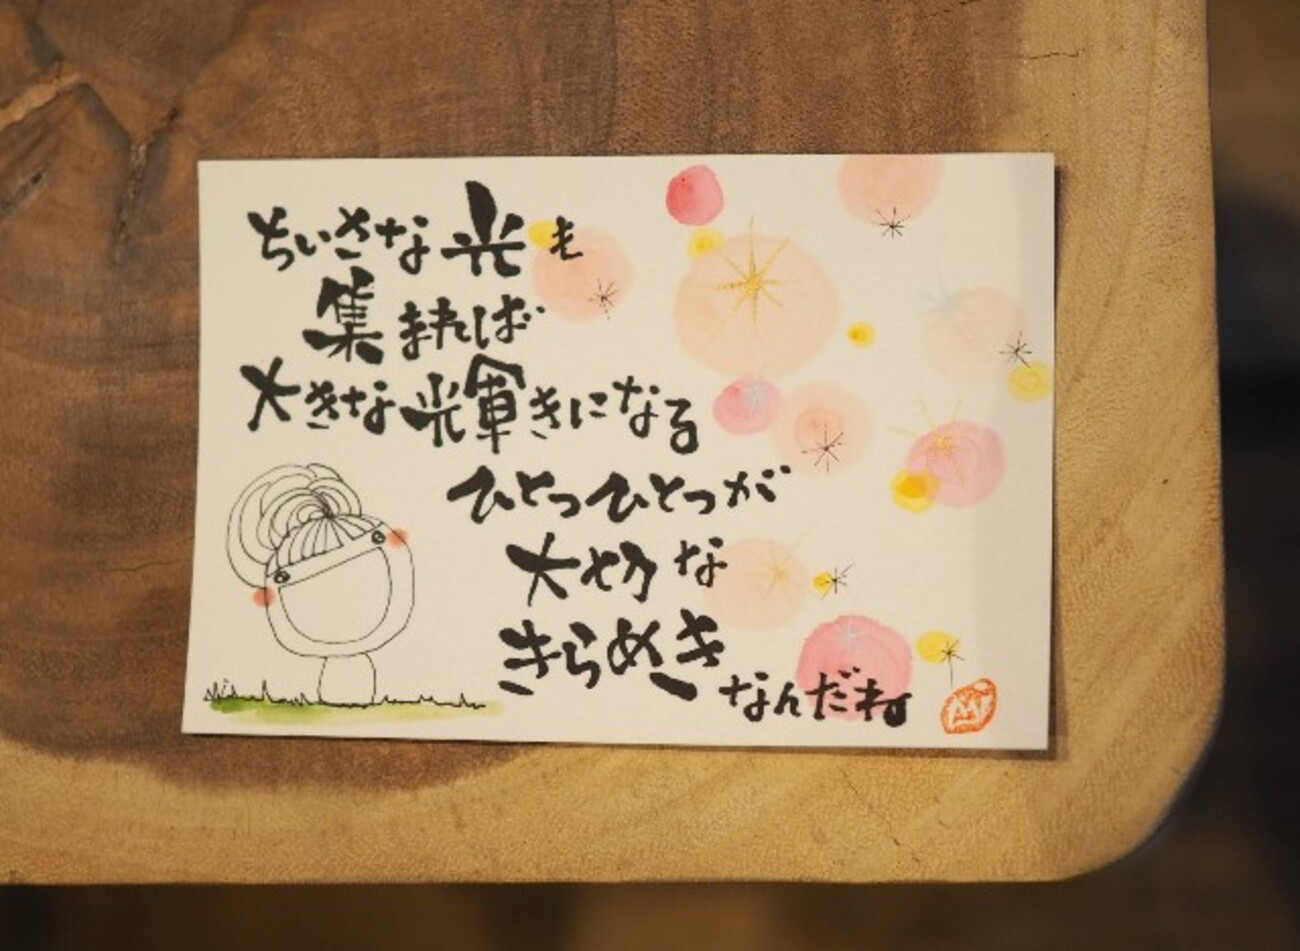 ちいさな光も
集まれば
大きな輝きになる
ひとつひとつが
大切な
きらめき
なんだね